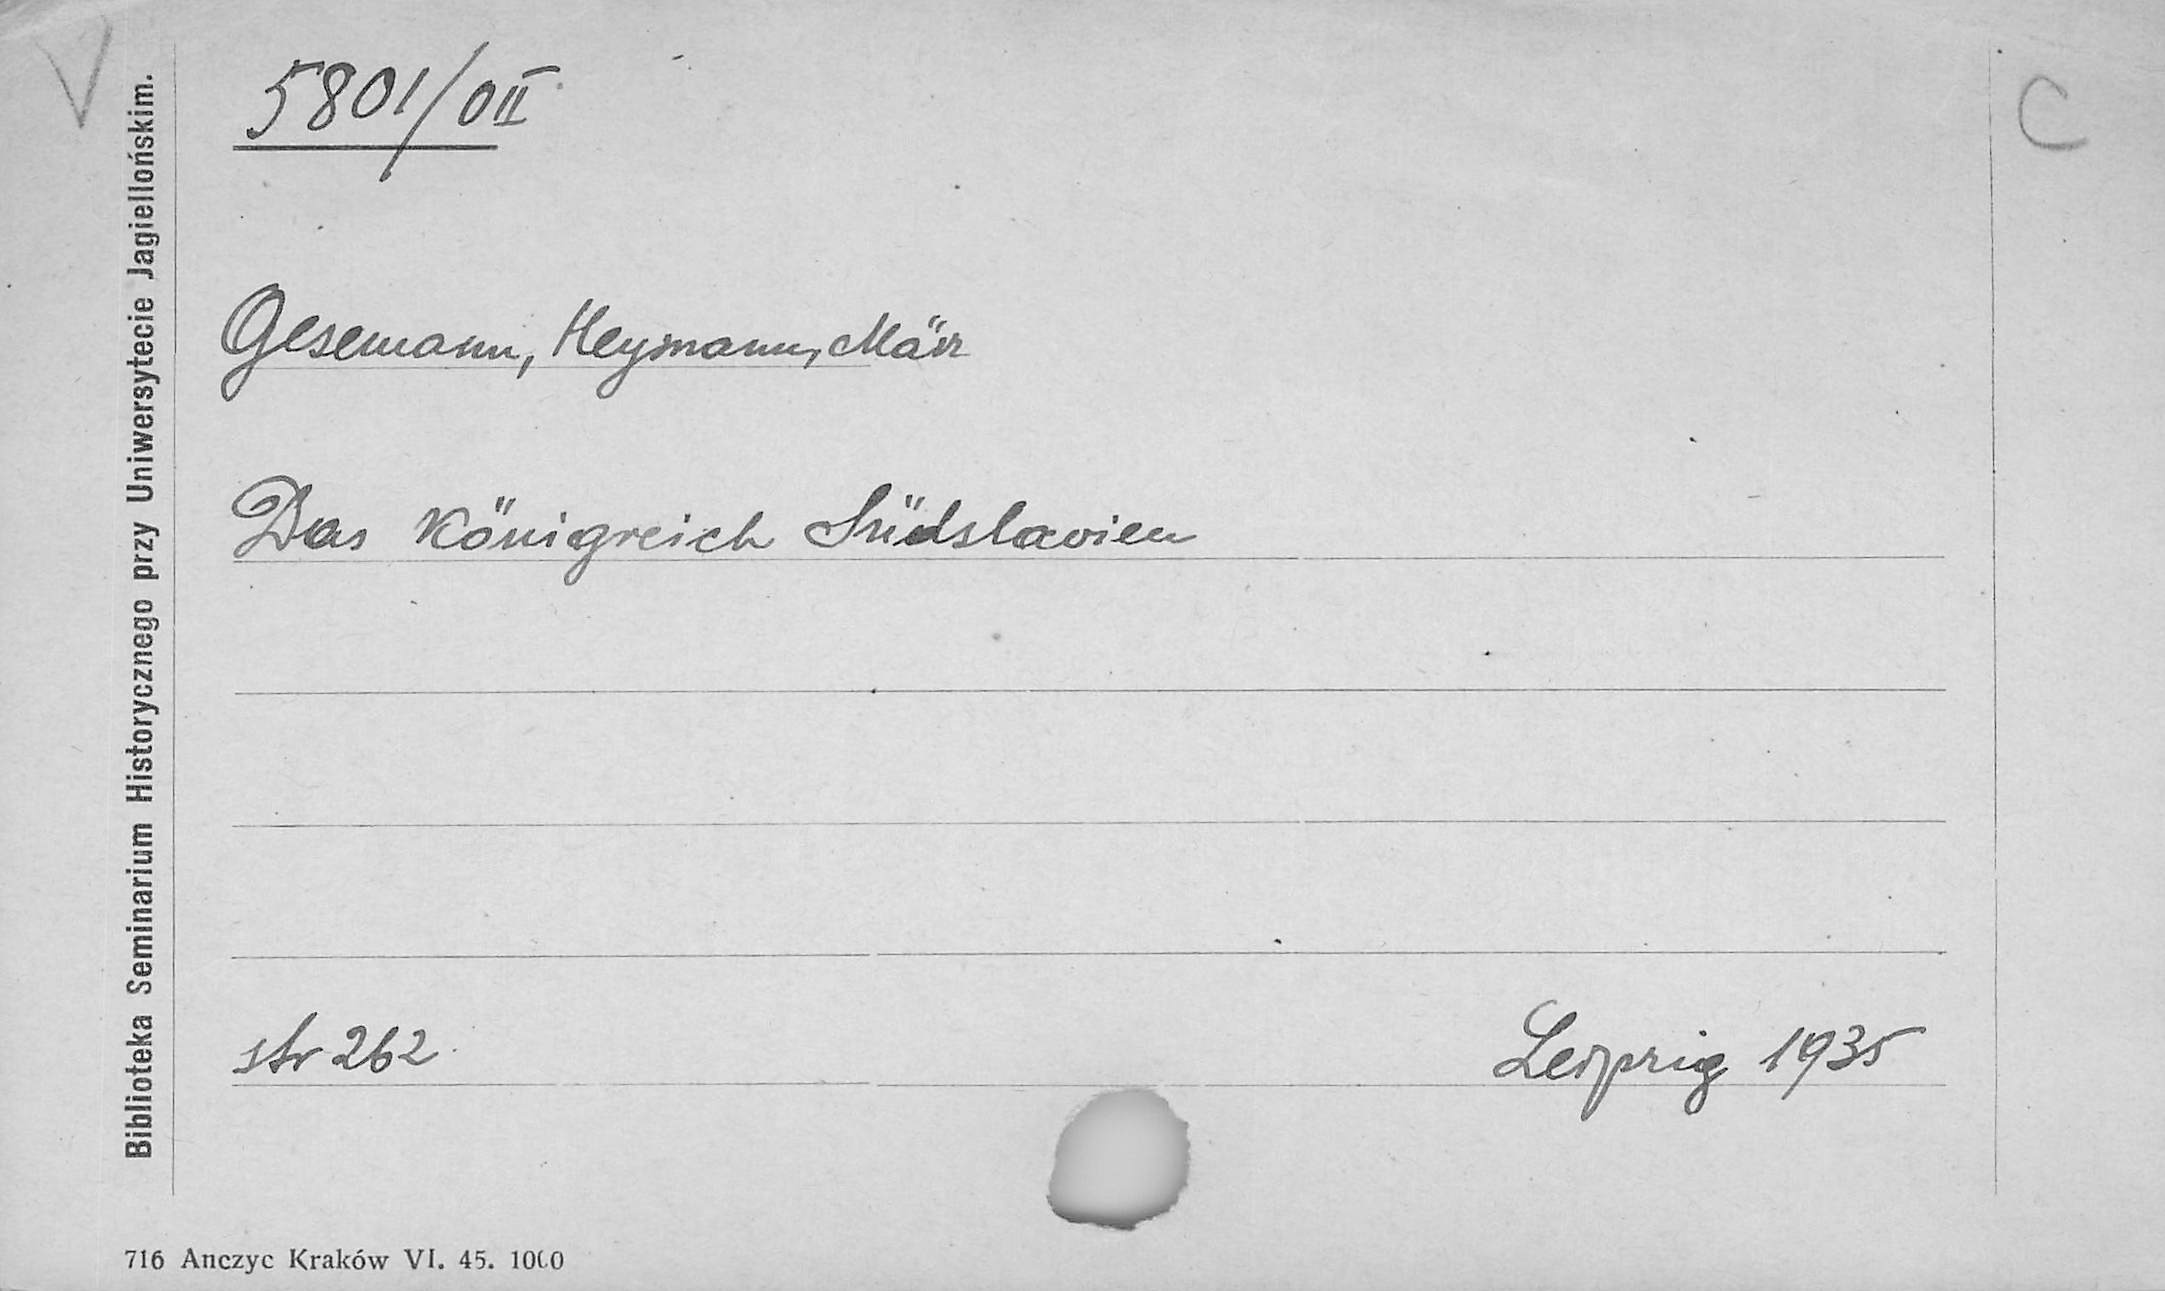 V
C
5801/OII
Gesemann, Heymann, Märr
Das Königreich Südslavien
str 262
Leipzig 1935
Biblioteka Seminarium Historycznego przy Uniwersytecie Jagiellońskim.
716 Anczyc Kraków VI. 45. 1000